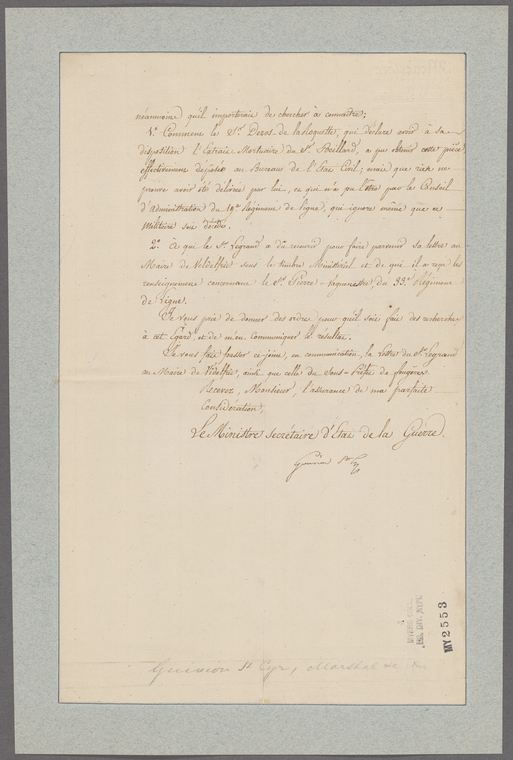 néanmoins qu'il importerait de chercher à connaître;
1.° Comment le S.r Deros de laloquette, qui déclare avoir à sa
disposition l'Extrait Mortuaire du S.r Breillard, a pu obtenir cette pièce
effectivement déposée au Bureau de l'Etat Civil; mais que rien ne
prouve avoir été délivrée par lui, ce qui n'a pu l'être par le Conseil
d'Administration du 19.e Régiment de ligne, qui ignore même que ce
Militaire soit décédé.
2.° À qui le S.r Legrand a dû recourir pour faire parvenir sa lettre au
Maire de sous le timbre Ministériel et de qui il a reçu les
renseignemens concernant le S.r Pierre Vaguemestre du 33.e Régiment
de ligne.
Je vous prie de donner des ordres pour qu'il soit fait des recherches
à cet Egard, et de m'en communiquer le résultat.
Je vous fais passer ci-joint, en communication, la lettre du S.r Legrand
au Maire de ainsi que celle du Sous-Préfet de Fougères.
Recevez, Monsieur, l'assurance de ma parfaite
Considération.
Le Ministre secrétaire d'Etat de la Guerre.
Gouvion S.t Cyr
MYERS COLL.
MSS. DIV. NYPL
MY2553
Guivion St Cyr, Marshal de